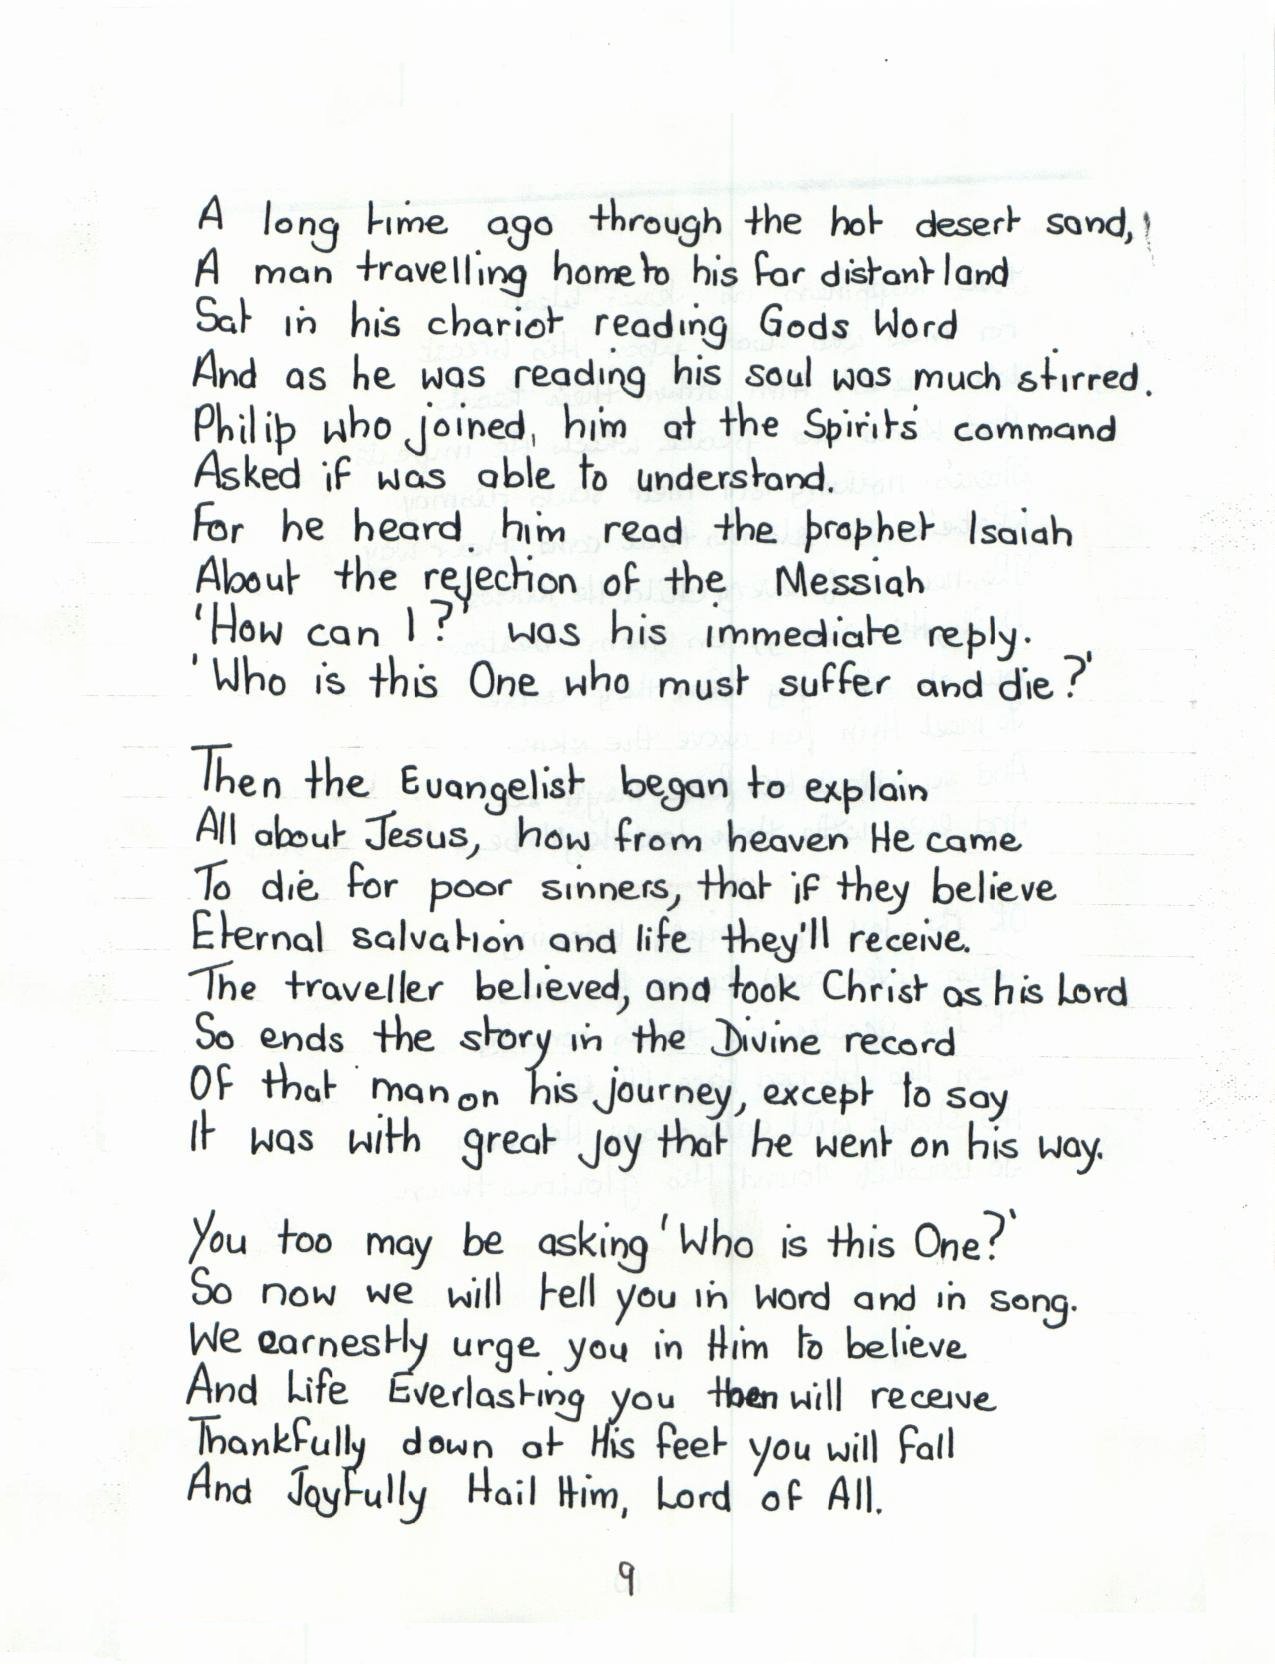 A long time ago through the hot desert sand,
A man travelling home to his far distant land
Sat in his chariot reading Gods Word
And as he was reading his soul was much stirred.
Philip who joined, him at the Spirit's command
Asked if was able to understand.
For he heard him read the prophet Isaiah
About the rejection of the Messiah
'How can I?' was his immediate reply.
'Who is this One who must suffer and die?'
Then the Evangelist began to explain
All about Jesus, how from heaven He came
To die for poor sinners, that if they believe
Eternal salvation and life they'll receive.
The traveller believed, and took Christ as his Lord
So ends the story in the Divine record
Of that man on his journey, except to say
It was with great joy that he went on his way.
You too may be asking 'Who is this One?'
So now we will tell you in word and in song.
We earnestly urge you in Him to believe
And Life Everlasting you then will receive
Thankfully down at His feet you will fall
And Joyfully Hail Him, Lord of All.
9